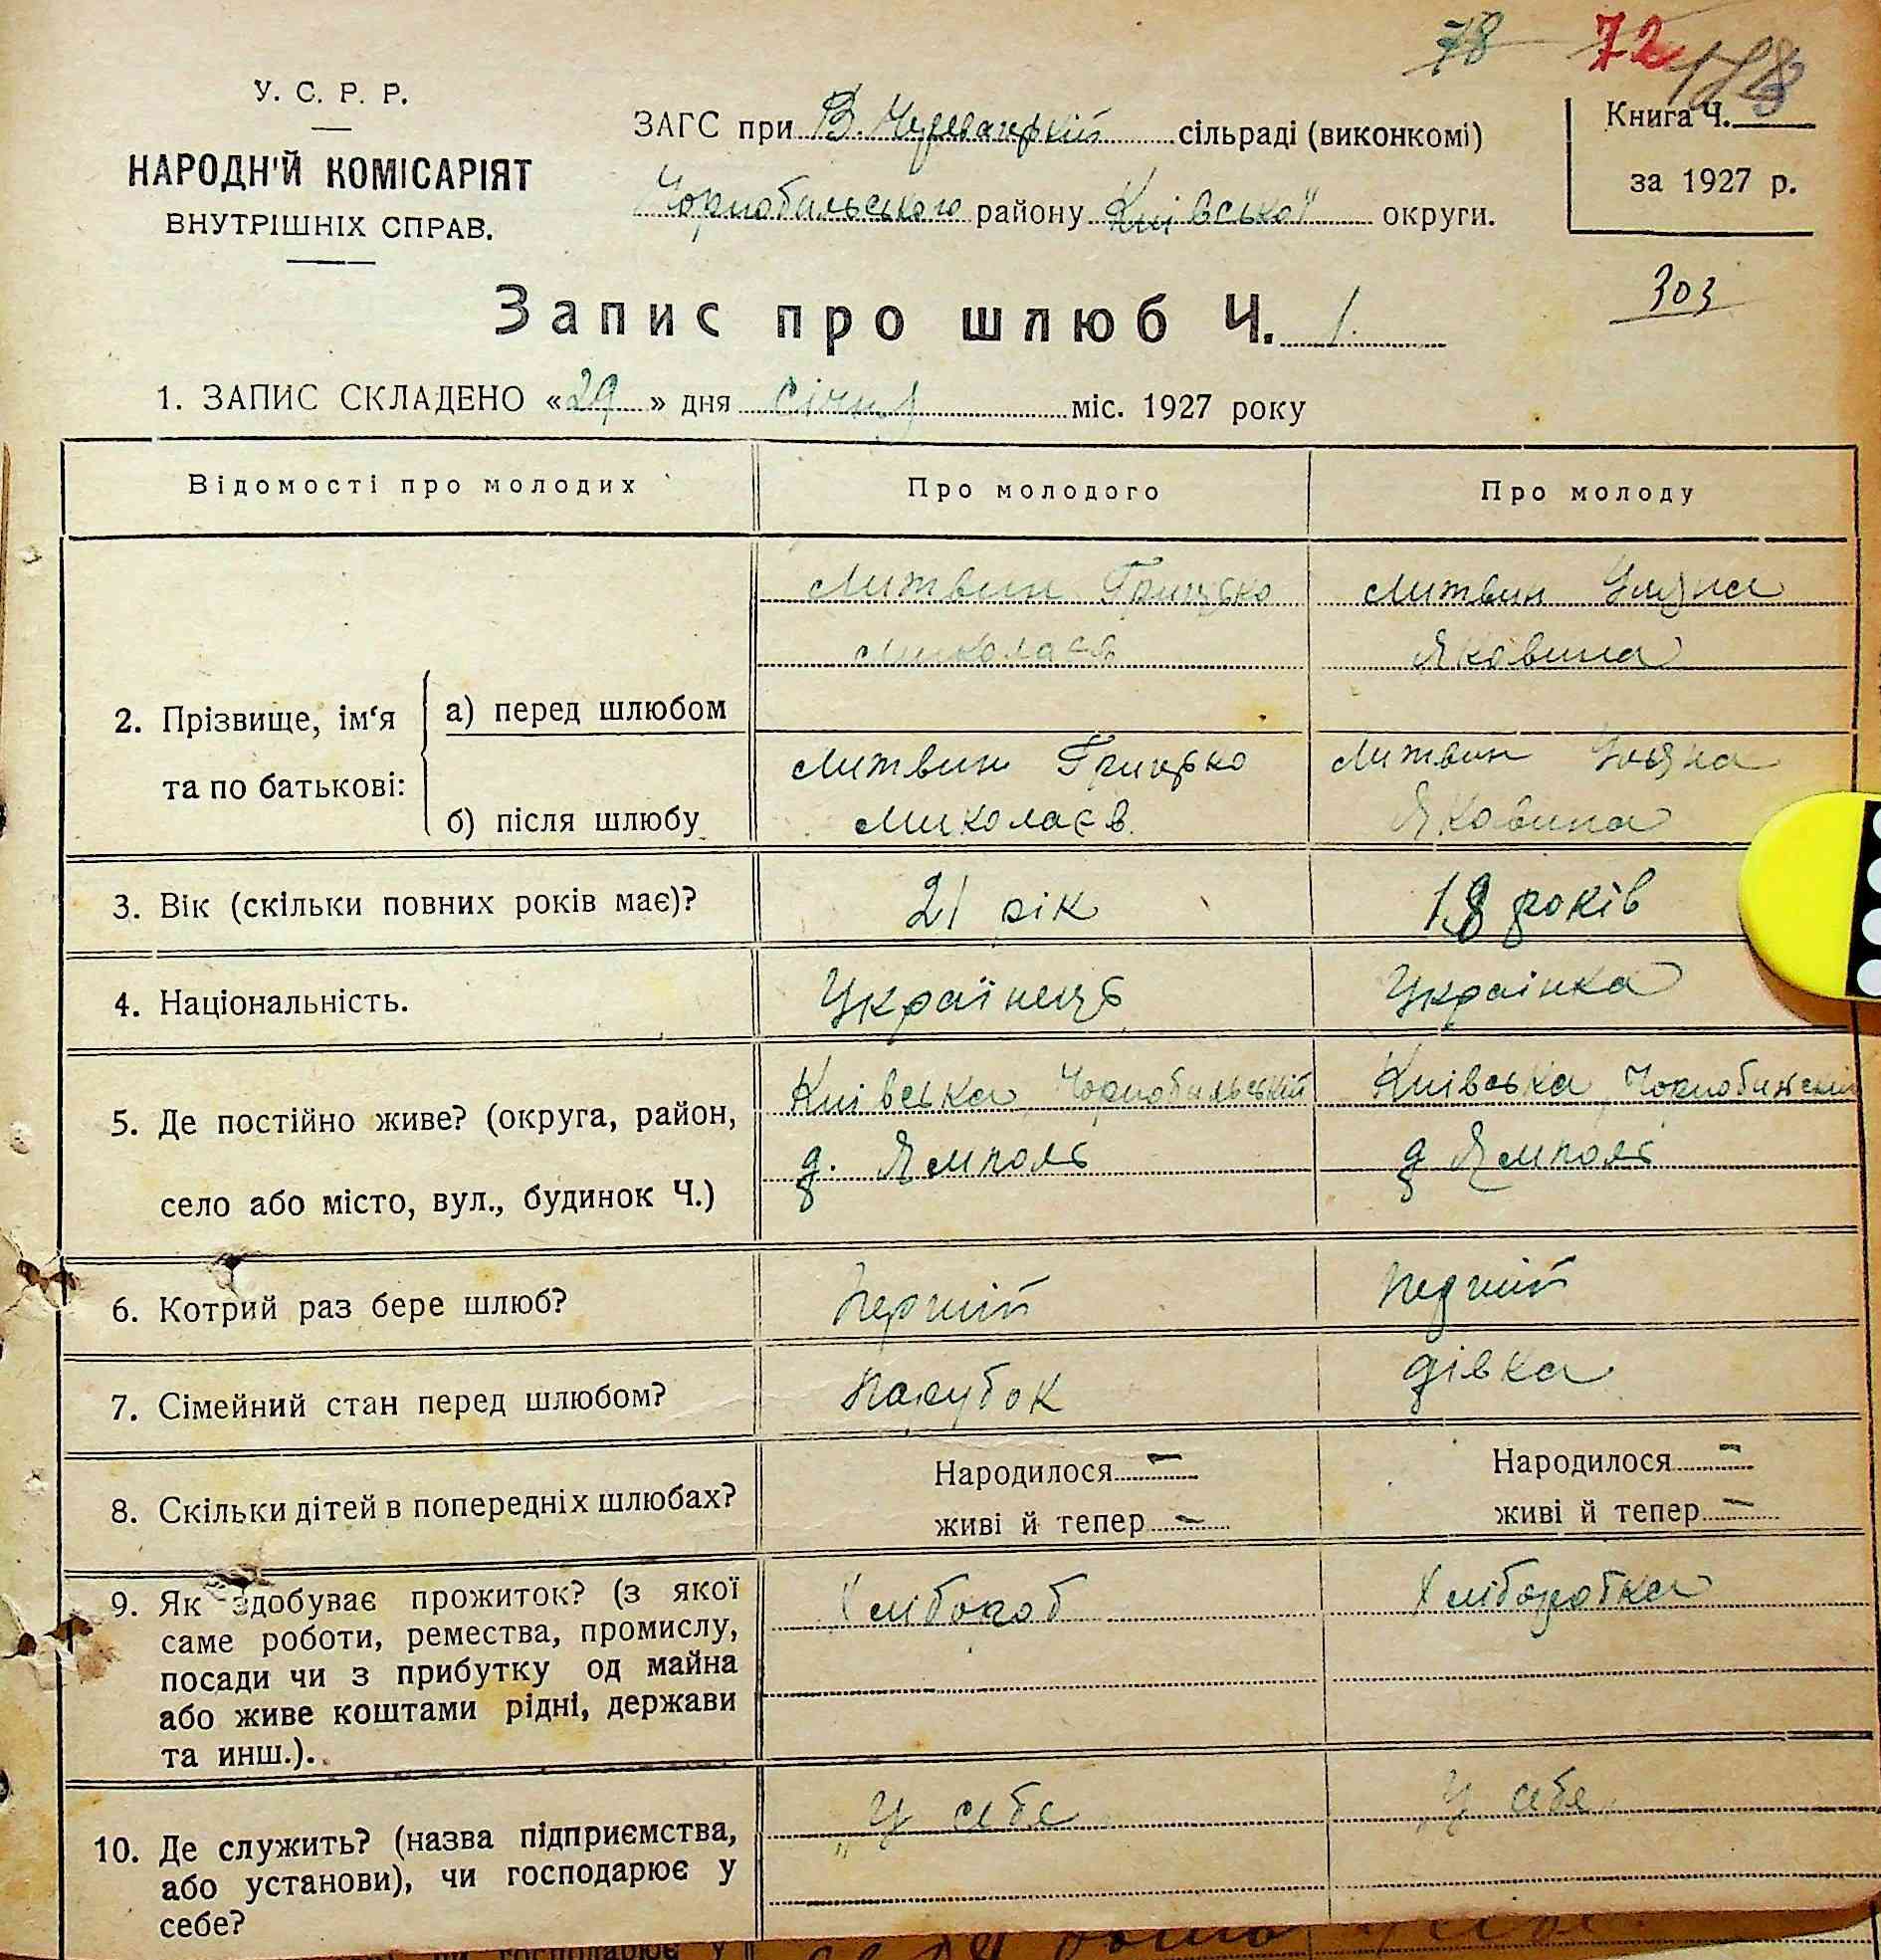 78 72 188
У. С. Р. Р.
НАРОДН'Й КОМІСАРІЯТ
ВНУТРІШНІХ СПРАВ.
ЗАГС при В. Черевацькій сільраді (виконкомі)
Чорнобильського району Киівськоі округи.
Книга Ч.
за 1927 р.
303
Запис про шлюб Ч. 1.
1. ЗАПИС СКЛАДЕНО «29» дня Січня міс. 1927 року
Відомості про молодих Про молодого Про молоду
Литвин Грицько Литвин Уляна
Миколаєв Яковина
2. Прізвище, ім‘я та по батькові:
а) перед шлюбом
Литвин Грицько Литвин Уляна
б) після шлюбу Миколаєв. Яковина
3. Вік (скільки повних років має)? 21 рік 18 років
4. Національність. Украінець Украінка
5. Де постійно живе? (округа, район, Киівська, Чорнобильській Киівська, Чорнобильській
село або місто, вул., будинок Ч.) д. Ямполь д Ямполь
6. Котрий раз бере шлюб? Перший Перший
7. Сімейний стан перед шлюбом? Парубок дівка
8. Скільки дітей в попередніх шлюбах? Народилося – Народилося –
живі й тепер – живі й тепер –
9. Як здобуває прожиток? (з якої Хлібороб Хліборобка
саме роботи, ремества, промислу,
посади чи з прибутку од майна
або живе коштами рідні, держави
та инш.).
10. Де служить? (назва підприємства, У себе У себе
або установи), чи господарює у
себе?
господарює у